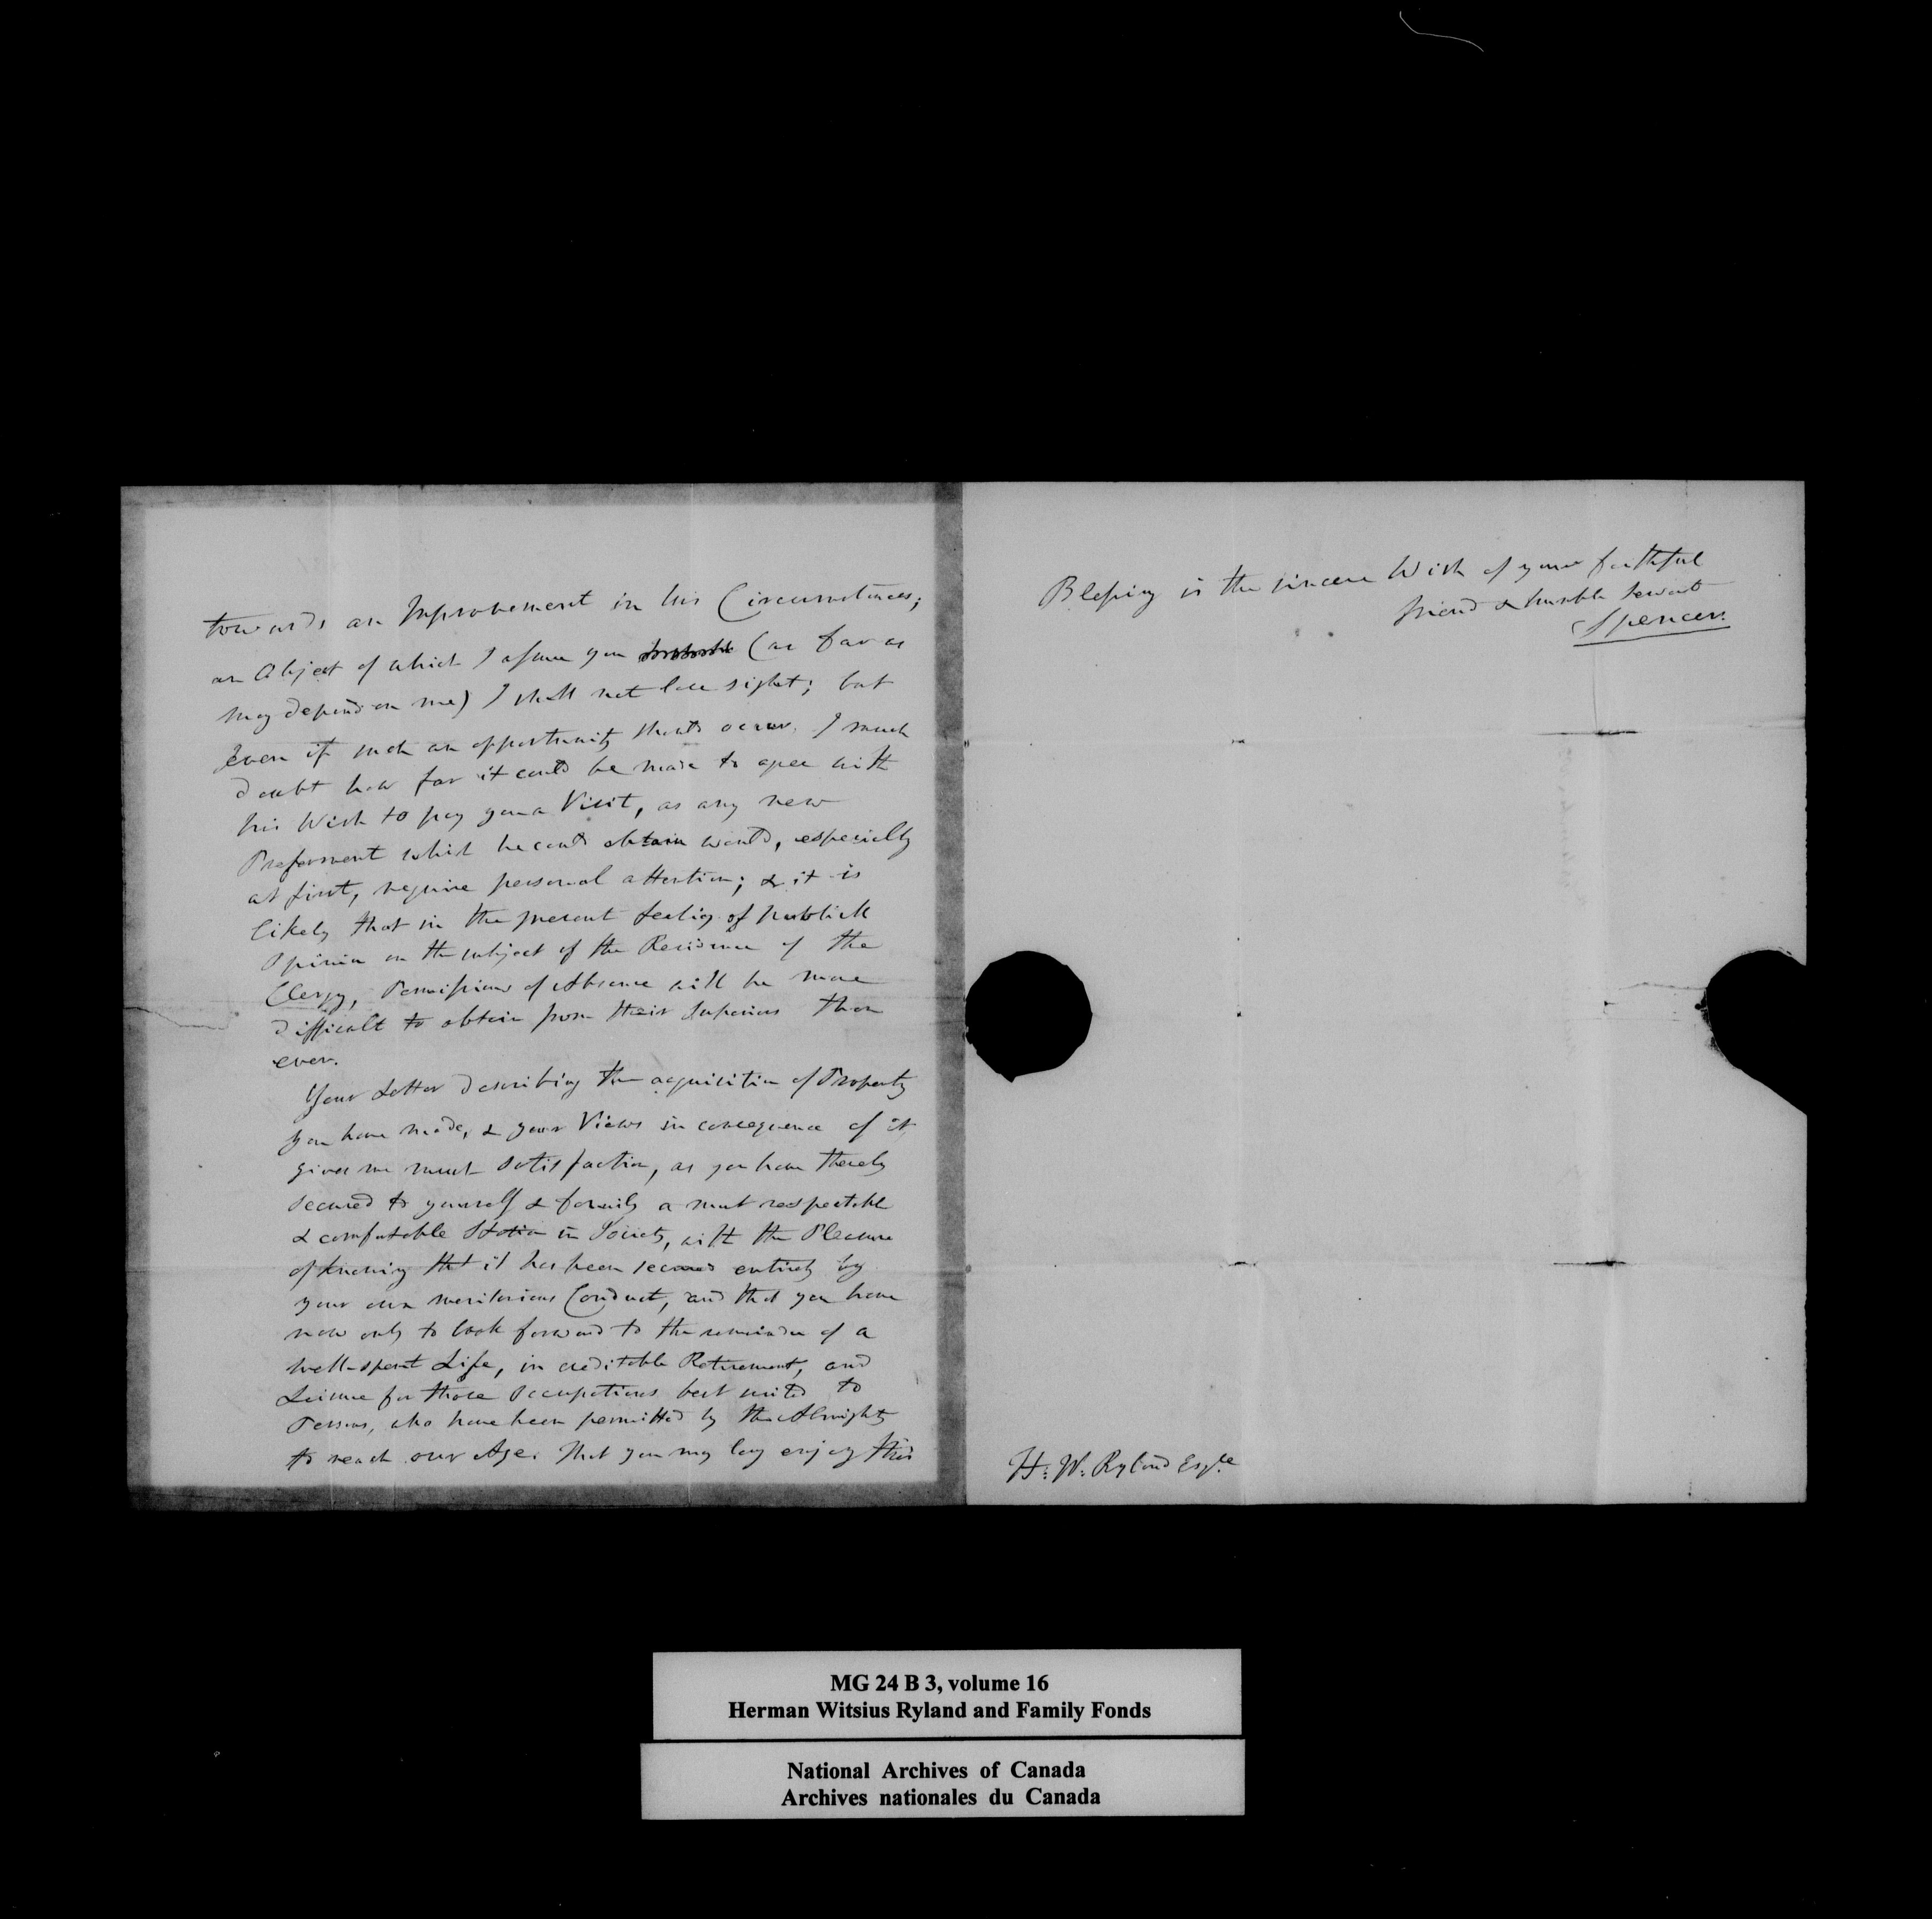 towards an Improvement in his Circumstances;
an Object of which I assure you (as far as
may depend on me) I shall not lose sight; but
even if such an opportunity should occur. I much
doubt how far it could be made to agree with
his Wish to pay you a Visit, as any new
Preferment which he could obtain would, especially
at first, require personal attention; & it is
likely that in the present feeling of publick
Opinion on the subject of the Residence of the
Clergy, Permissions of Absence will be more
difficult to obtain from their Superiors than
ever.
Your Letter describing the acquisition of Property
you have made, & your Views in consequence of it
gives me much Satisfaction, as you have thereby
secured to yourself & family a most respectable
& comfortable Station in Society, with the Pleasure
of knowing that it has been secured entirely by
your own meritorious Conduct, and that you have
now only to look forward to the remainder of a
well-spent Life, in creditable Retirement, and
Leisure for those Occupations best suited to
Persons, who have been permitted by the Almighty
to reach our Age. That you may long enjoy this
Blessing is the sincere Wish of your faithful
friend & humble Servant
Spencer.
H: W: Ryland Esqre
MG 24 B 3, volume 16
Herman Witsius Ryland and Family Fonds
National Archives of Canada
Archives nationales du Canada